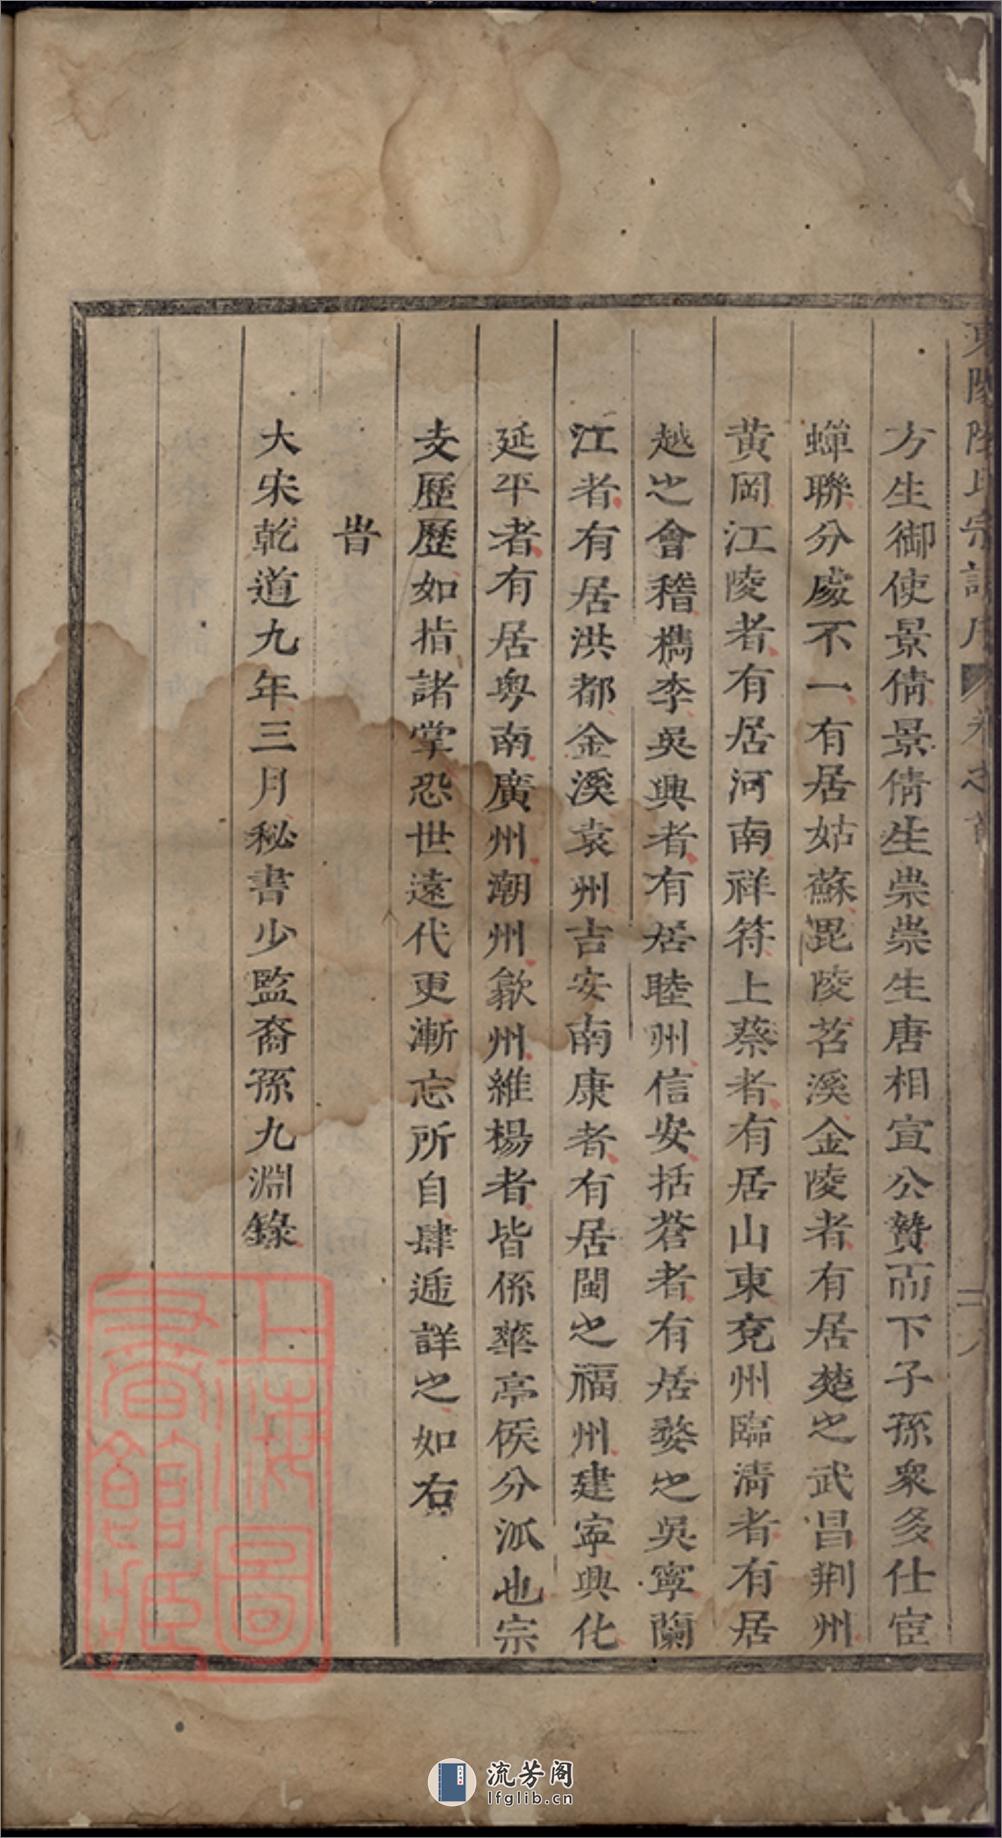 東陽陸氏宗譜序 卷之首 二
方生御使景倩景倩生崇崇生唐相宣公贄而下子孫衆多仕宦
蟬聯分處不一有居姑蘇毘陵苕溪金陵者有居楚之武昌荆州
黄岡江陵者有居河南祥符上蔡者有居山東兖州臨清者有居
越之會稽檇李吳興者有居睦州信安括蒼者有居婺之吳寧蘭
江者有居洪都金溪袁州吉安南康者有居閩之福州建寧興化
延平者有居粤南廣州潮州歙州維楊者皆係華亭侯分派也宗
支歷歷如指諸掌恐世遠代更漸忘所自肆逓詳之如右
旹
大宋乾道九年三月秘書少監裔孫九淵錄
上海圖書館藏
流芳阁
lfglib.cn